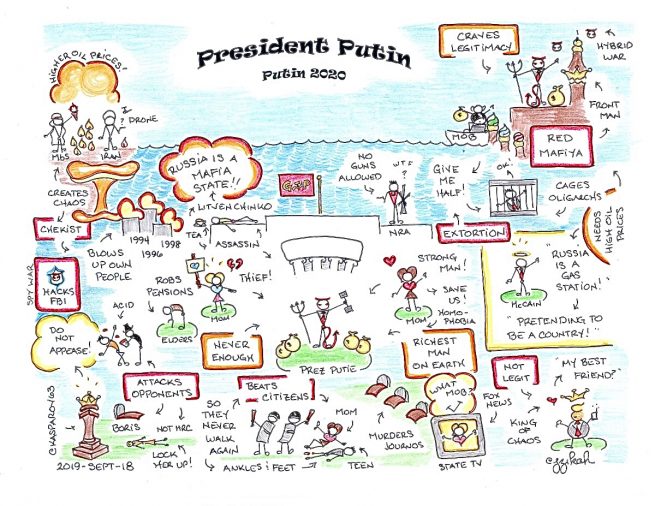 President Putin
Putin 2020
HIGHER OIL PRICES!
?
DRONE
MbS
IRAN
CREATES
CHAOS
CHEKIST
SPY WAR
HACKS
FBI
BLOWS
UP OWN
PEOPLE
1994
1996
1998
RUSSIA IS A
MAFIA
STATE!!
LITVENCHINKO
TEA
ASSASSIN
GOP
NO
GUNS
ALLOWED
WTF
?
NRA
CRAVES
LEGITIMACY
HYBRID
WAR
FRONT
MAN
MOB
RED
MAFIYA
GIVE
ME
HALF!
OK.
CAGES
OLIGARCHS
EXTORTION
NEEDS
HIGH OIL
PRICES
"RUSSIA
IS A
GAS
STATION!"
McCAIN
"PRETENDING TO
BE A COUNTRY!"
ROBS
PENSIONS
ELDERS
MOM
THIEF!
STRONG
MAN!
SAVE
US!
HOMO-
PHOBIA
MOM
ACID
DO
NOT
APPEASE!
NEVER
ENOUGH
PREZ PUTIE
RICHEST
MAN
ON EARTH
ATTACKS
OPPONENTS
BORIS
NOT HRC
LOCK
HER UP!
©KASPAROV63
2019-SEPT-18
BEATS
CITIZENS
SO
THEY
NEVER
WALK
AGAIN
ANKLES & FEET
MOM
TEEN
MURDERS
JOURNOS
WHAT
MOB?
FOX
NEWS
STATE TV
NOT
LEGIT
"MY BEST
FRIEND?"
KING
OF
CHAOS